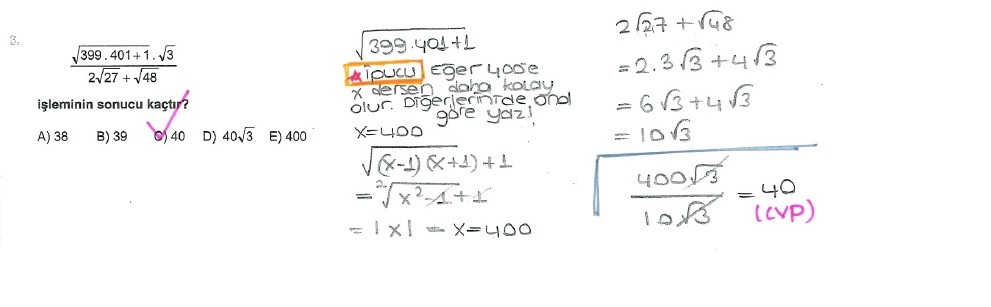 3.
√399.401+1 . √3
2√27 + √48
işleminin sonucu kaçtır?
A) 38 B) 39 C) 40 D) 40√3 E) 400
√399.401+1
★ ipucu Eğer 400'e
x dersen daha kolay
olur. Diğerlerini de ona
göre yaz!
x=400
√(x-1)(x+1)+1
= ²√x²-1+1
= |x| = x=400
2√27 + √48
= 2.3√3 + 4√3
= 6√3 + 4√3
= 10√3
400√3
10√3
= 40
(CVP)